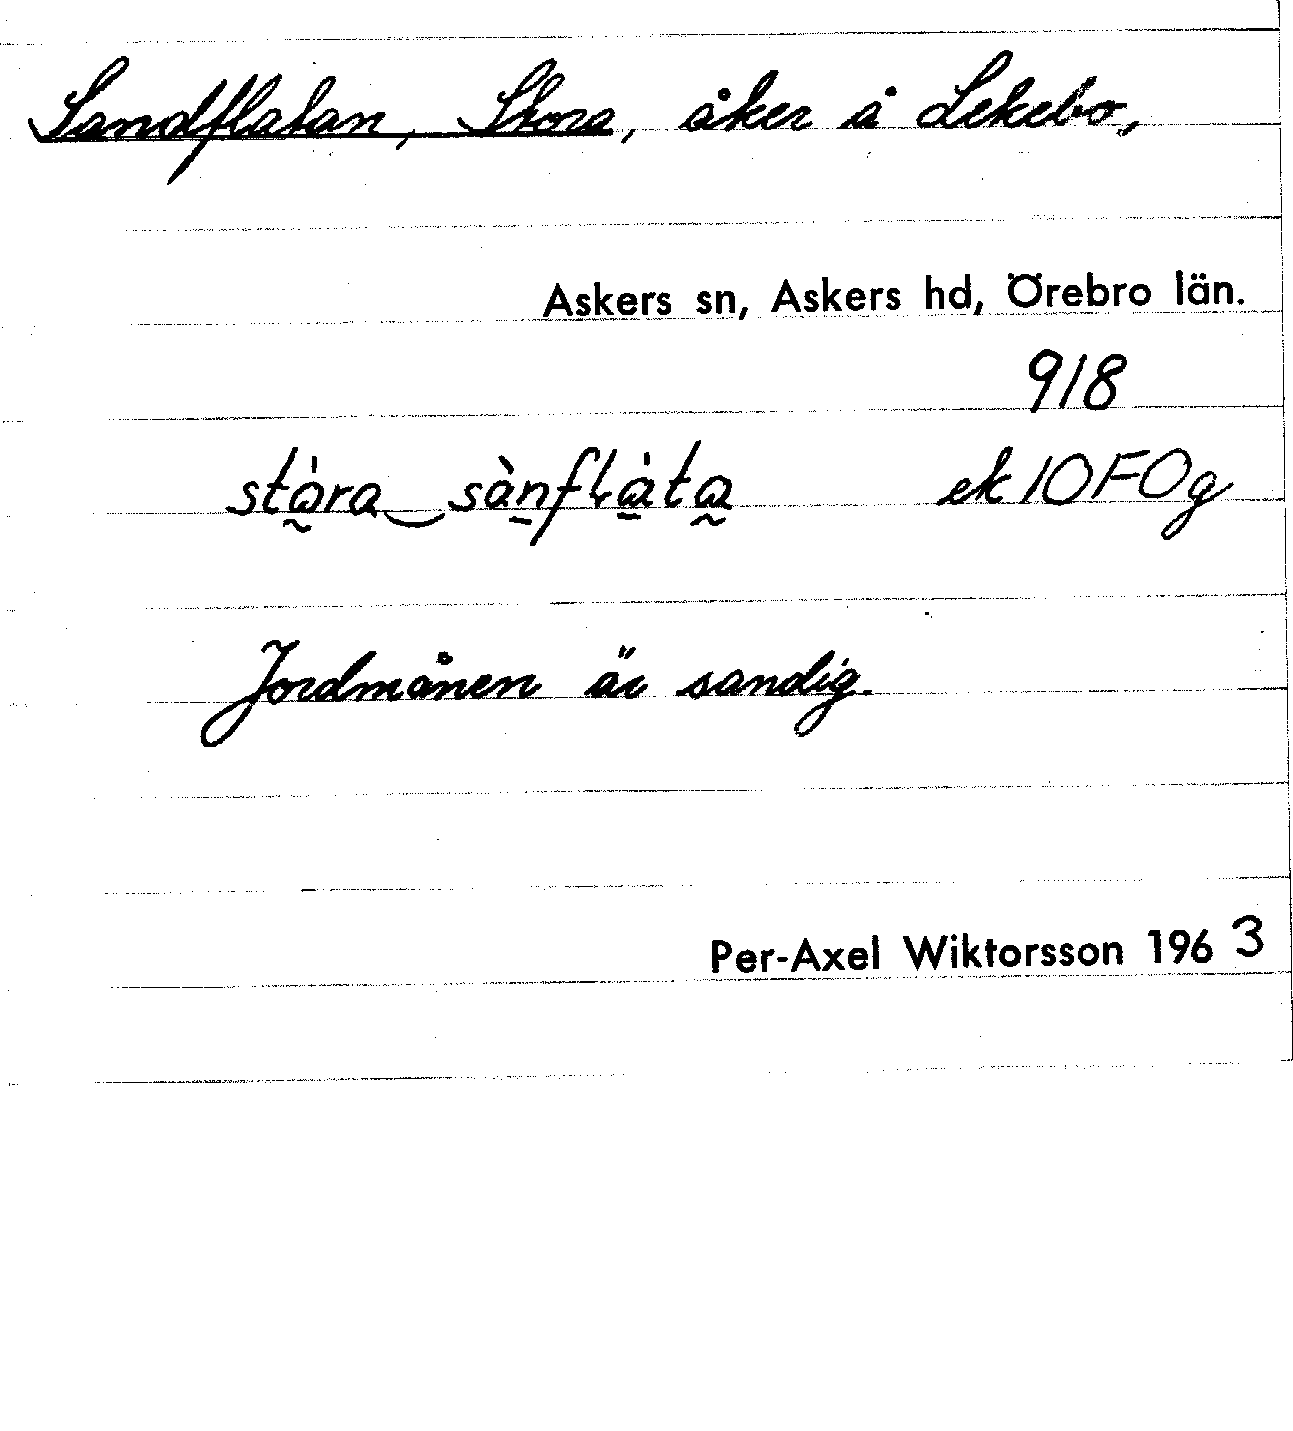 Sandflatan, Stora, åker å Lekebo,
Askers sn, Askers hd, Örebro län.
918
stɷ̀ra‿sànflàtɷ ek 10F0g
Jordmånen är sandig.
Per-Axel Wiktorsson 1963